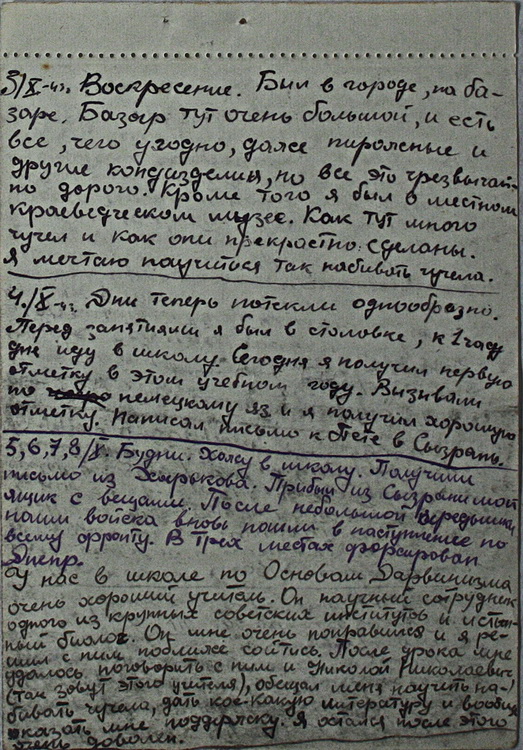 3/X-43. Воскресение. Был в городе, на ба-
заре. Базар тут очень большой, и есть
все, чего угодно, даже пирожные и
другие кондизделия, но все это чрезвычай-
но дорого. Кроме того я был в местном
краеведческом музее. Как тут много
чучел и как они прекрасно сделаны.
Я мечтаю научиться так набивать чучела.
4./X-43. Дни теперь потекли однообразно.
Перед занятиями я был в столовке, к 1 часу
дня иду в школу. Сегодня я получил первую
отметку в этом учебном году. Вызывали
по немецкому яз и я получил хорошую
отметку. Написал письмо к Пете в Сызрань.
5,6,7,8/X. Будни. Хожу в школу. Получили
письмо из Харькова. Прибыл из Сызрани мой
ящик с вещами. После небольшой передышки
наши войска вновь пошли в наступление по
всему фронту. В трех местах форсирован
Днепр.
У нас в школе по Основам Дарвинизма
очень хороший учитель. Он научный сотрудник
одного из крупных советских институтов и истин-
ный биолог. Он мне очень понравился и я ре-
шил с ним поближе сойтись. После урока мне
удалось поговорить с ним и Николай Николаевич
(так зовут этого учителя), обещал меня научить на-
бивать чучела, дать кое-какую литературу и вообще
оказать мне поддержку. Я остался после этого
очень доволен.